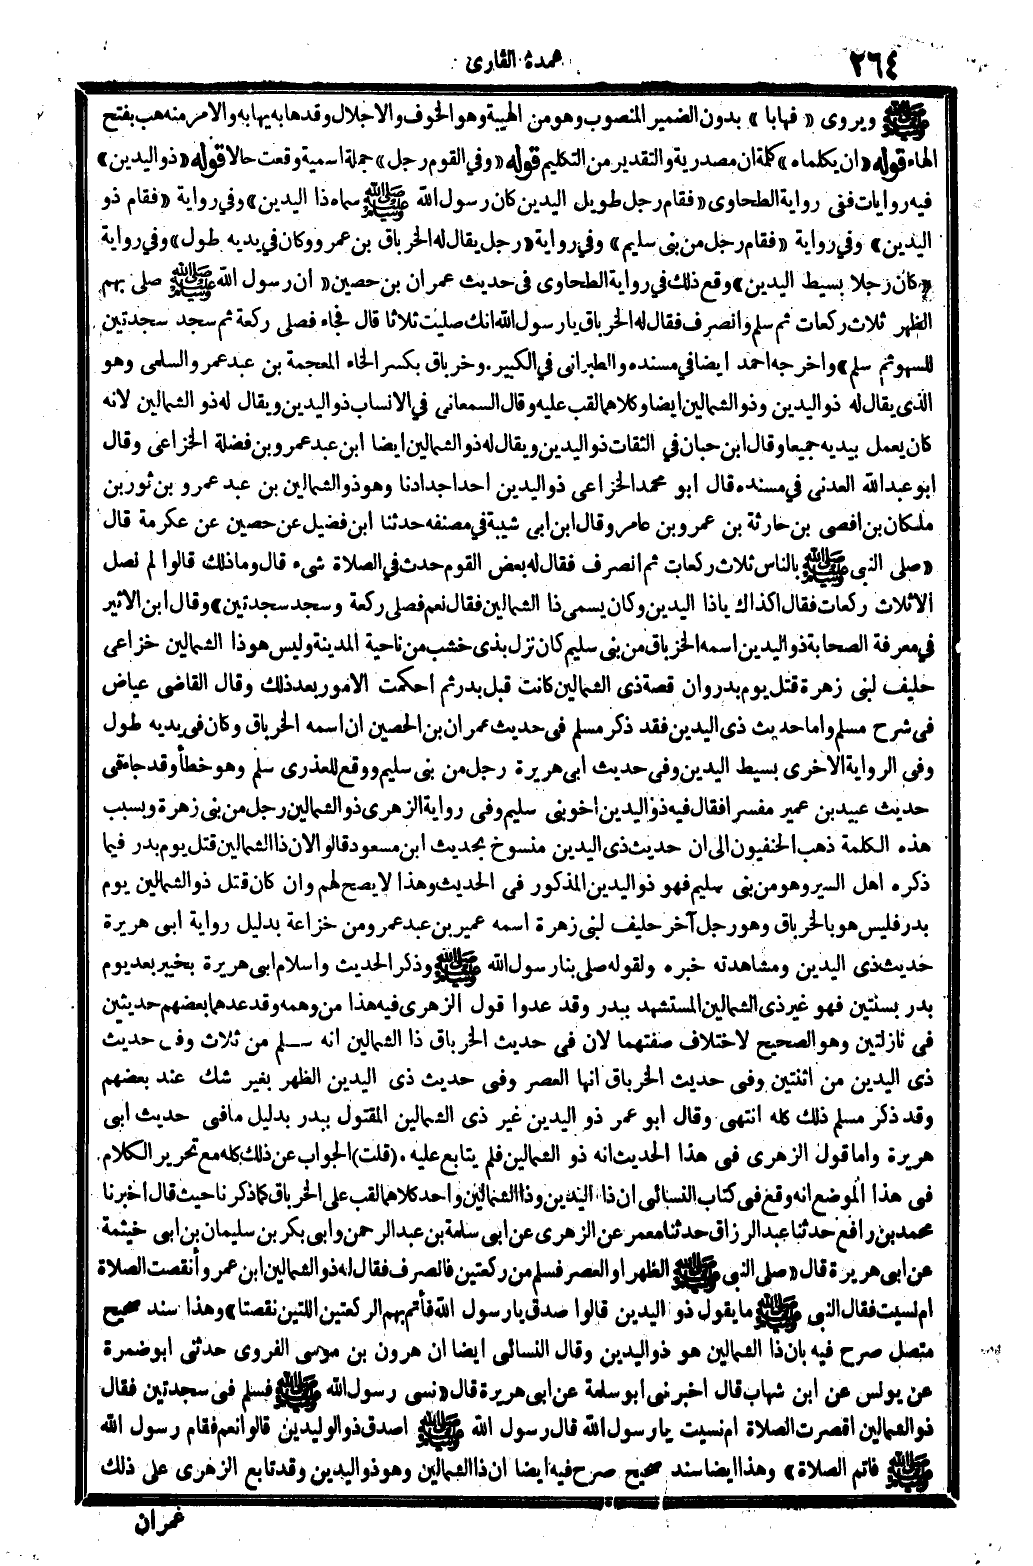 ٢٦٤
عمدة القارئ
ﷺ ويروى « فهابا » بدون الضمير المنصوب وهو من الهيبة وهو الخوف والاجلال وقد هابه يهابه والامر منه هب بفتح
الهاء قوله « ان يكلماه » كلمة ان مصدرية والتقدير من التكليم قوله « وفي القوم رجل » جملة اسمية وقعت حالا قوله « ذو اليدين »
فيه روايات ففي رواية الطحاوى « فقام رجل طويل اليدين كان رسول الله ﷺ سماه ذا اليدين » وفي رواية « فقام ذو
اليدين » وفي رواية « فقام رجل من بنى سليم » وفي رواية « رجل يقال له الخرباق بن عمرو وكان في يديه طول » وفي رواية
« كان رجلا بسيط اليدين » وقع ذلك في رواية الطحاوى فى حديث عمران بن حصين « ان رسول الله ﷺ صلى بهم
الظهر ثلاث ركعات ثم سلم وانصرف فقال له الخرباق يا رسول الله انك صليت ثلاثا قال فجاء فصلى ركعة ثم سجد سجدتين
للسهو ثم سلم » واخرجه احمد ايضا في مسنده والطبرانى في الكبير . وخرباق بكسر الخاء المعجمة بن عبد عمرو السلمى وهو
الذى يقال له ذو اليدين وذو الشمالين ايضا وكلاهما لقب عليه وقال السمعانى في الانساب ذو اليدين ويقال له ذو الشمالين لانه
كان يعمل بيديه جميعا وقال ابن حبان في الثقات ذو اليدين ويقال له ذو الشمالين ايضا ابن عبد عمرو بن فضلة الخزاعى وقال
ابو عبد الله العدنى في مسنده قال ابو محمد الخزاعى ذو اليدين احد اجدادنا وهو ذو الشمالين بن عبد عمرو بن ثور بن
ملكان بن افصى بن حارثة بن عمرو بن عامر وقال ابن ابى شيبة في مصنفه حدثنا ابن فضيل عن حصين عن عكرمة قال
« صلى النبى ﷺ بالناس ثلاث ركعات ثم انصرف فقال له بعض القوم حدث في الصلاة شىء قال وما ذلك قالوا لم نصل
الا ثلاث ركعات فقال اكذاك ياذا اليدين وكان يسمى ذا الشمالين فقال نعم فصلى ركعة وسجد سجدتين » وقال ابن الاثير
في معرفة الصحابة ذو اليدين اسمه الخرباق من بنى سليم كان نزل بذى خشب من ناحية المدينة وليس هو ذا الشمالين خزاعى
حليف لبنى زهرة قتل يوم بدر وان قصة ذى الشمالين كانت قبل بدر ثم احكمت الامور بعد ذلك وقال القاضى عياض
فى شرح مسلم واما حديث ذى اليدين فقد ذكر مسلم فى حديث عمران بن الحصين ان اسمه الخرباق وكان فى يديه طول
وفى الرواية الاخرى بسيط اليدين وفى حديث ابى هريرة رجل من بنى سليم ووقع للعذرى سلم وهو خطأ وقد جاء فى
حديث عبيد بن عمير مفسرا فقال فيه ذو اليدين اخو بنى سليم وفى رواية الزهرى ذو الشمالين رجل من بنى زهرة وبسبب
هذه الكلمة ذهب الحنفيون الى ان حديث ذى اليدين منسوخ بحديث ابن مسعود قالوا لان ذا الشمالين قتل يوم بدر فيما
ذكره اهل السير وهو من بنى سليم فهو ذو اليدين المذكور فى الحديث وهذا لا يصح لهم وان كان قتل ذو الشمالين يوم
بدر فليس هو بالخرباق وهو رجل آخر حليف لبنى زهرة اسمه عمير بن عبد عمرو من خزاعة بدليل رواية ابى هريرة
حديث ذى اليدين ومشاهدته خبره ولقوله صلى بنا رسول الله ﷺ وذكر الحديث واسلام ابى هريرة بخيبر بعد يوم
بدر بسنتين فهو غير ذى الشمالين المستشهد ببدر وقد عدوا قول الزهرى فيه هذا من وهمه وقد عدها بعضهم حديثين
فى نازلتين وهو الصحيح لاختلاف صفتهما لان فى حديث الخرباق ذا الشمالين انه سلم من ثلاث وفى حديث
ذى اليدين من اثنتين وفى حديث الخرباق انها العصر وفى حديث ذى اليدين الظهر بغير شك عند بعضهم
وقد ذكر مسلم ذلك كله انتهى وقال ابو عمر ذو اليدين غير ذى الشمالين المقتول ببدر بدليل مافى حديث ابى
هريرة واما قول الزهرى فى هذا الحديث انه ذو الشمالين فلم يتابع عليه . (قلت) الجواب عن ذلك كله مع تحرير الكلام
فى هذا الموضع انه وقع فى كتاب النسائى ان ذا اليدين وذا الشمالين واحد كلاهما لقب على الخرباق كما ذكرنا حيث قال اخبرنا
محمد بن رافع حدثنا عبد الرزاق حدثنا معمر عن الزهرى عن ابى سلمة بن عبد الرحمن وابى بكر بن سليمان بن ابى خيثمة
عن ابى هريرة قال « صلى النبى ﷺ الظهر او العصر فسلم من ركعتين فانصرف فقال له ذو الشمالين ابن عمرو أنقصت الصلاة
ام نسيت فقال النبى ﷺ ما يقول ذو اليدين قالوا صدق يا رسول الله فأتم بهم الركعتين اللتين نقصتا » وهذا سند صحيح
متصل صرح فيه بان ذا الشمالين هو ذو اليدين وقال النسائى ايضا ان هرون بن موسى الفروى حدثنى ابو ضمرة
عن يونس عن ابن شهاب قال اخبرنى ابو سلمة عن ابى هريرة قال « نسى رسول الله ﷺ فسلم فى سجدتين فقال
ذو الشمالين اقصرت الصلاة ام نسيت يا رسول الله قال رسول الله ﷺ اصدق ذو اليدين قالوا نعم فقام رسول الله
ﷺ فاتم الصلاة » وهذا ايضا سند صحيح صرح فيه ايضا ان ذا الشمالين وهو ذو اليدين وقد تابع الزهرى على ذلك
عمران